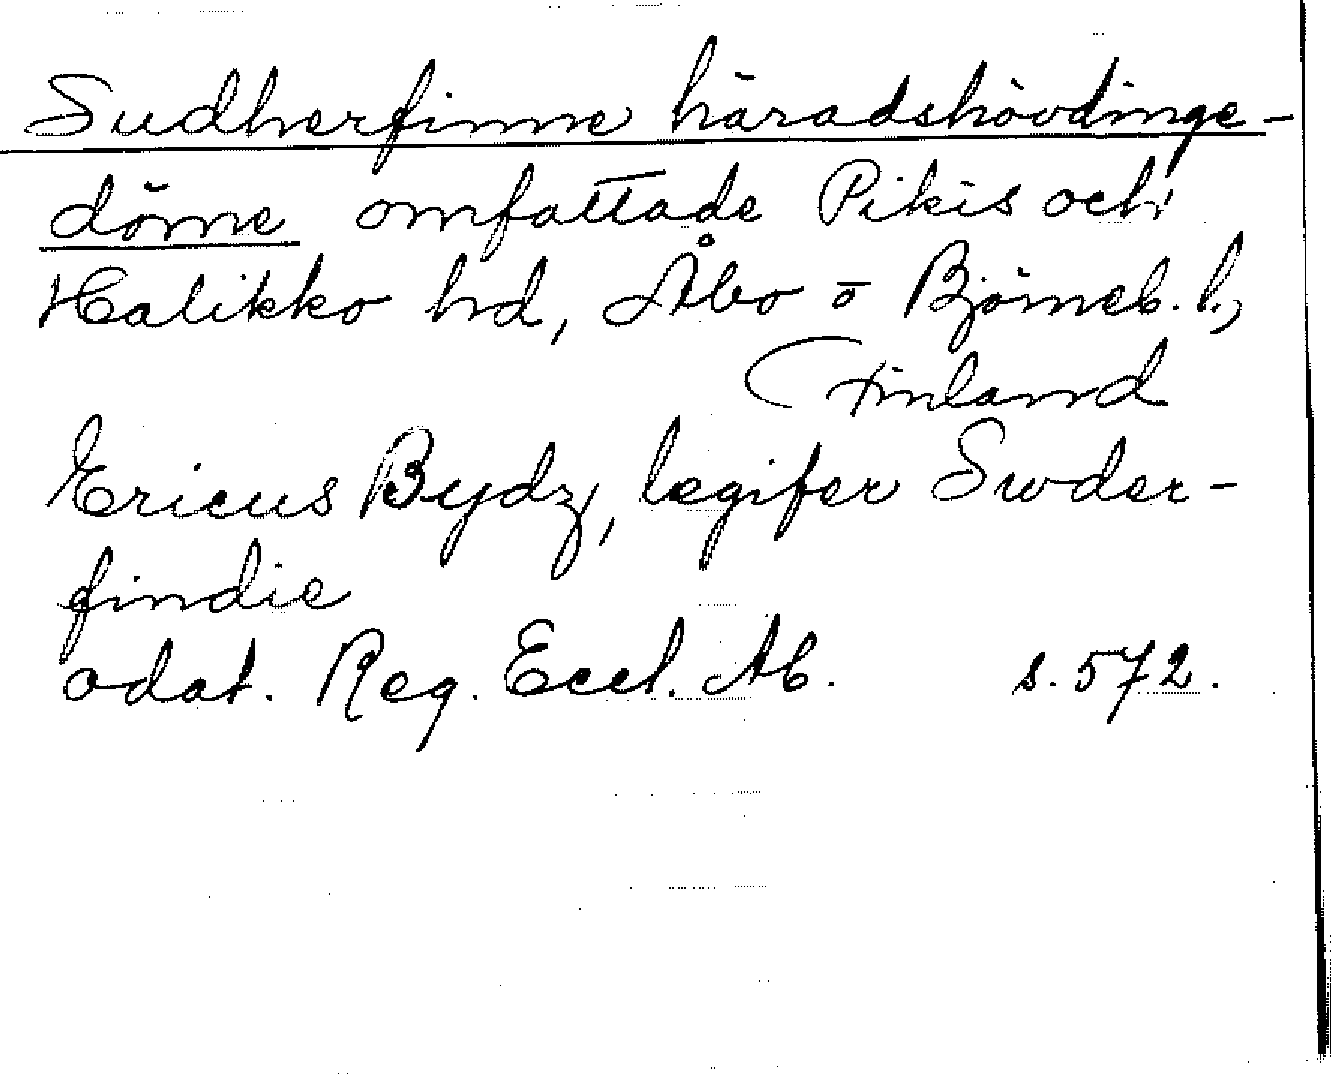 Sudherfinne häradshövdinge-
döme omfattade Pikis och
Halikko hd, Åbo o Björneb. l.,
Finland
Ericus Bydz, legifer Swder-
findie
odat. Reg. Eccl. Ab. s. 572.